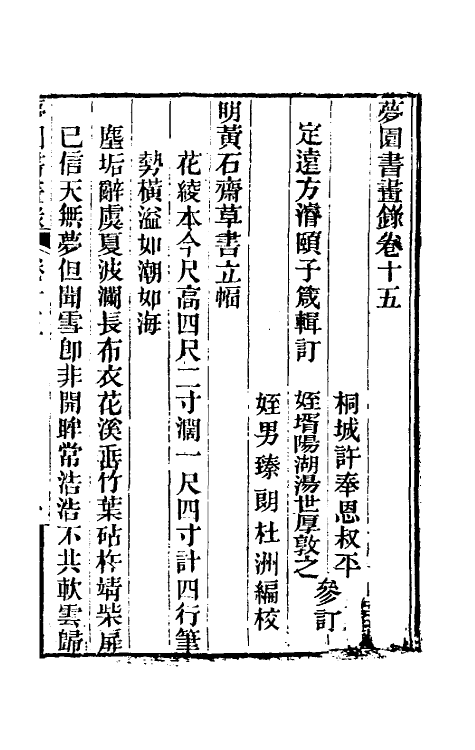 夢園書畫錄卷十五
桐城許奉恩叔平
定遠方濬頤子箴輯訂
姪壻陽湖湯世厚敦之
參訂
姪男臻朗杜洲編校
明黃石齋草書立幅
花綾本今尺高四尺二寸濶一尺四寸計四行筆
勢橫溢如潮如海
塵垢辭虞夏波瀾長布衣花溪垂竹葉砧杵靖柴扉
已信天無夢但聞雪卽非開眸常浩浩不共軟雲歸